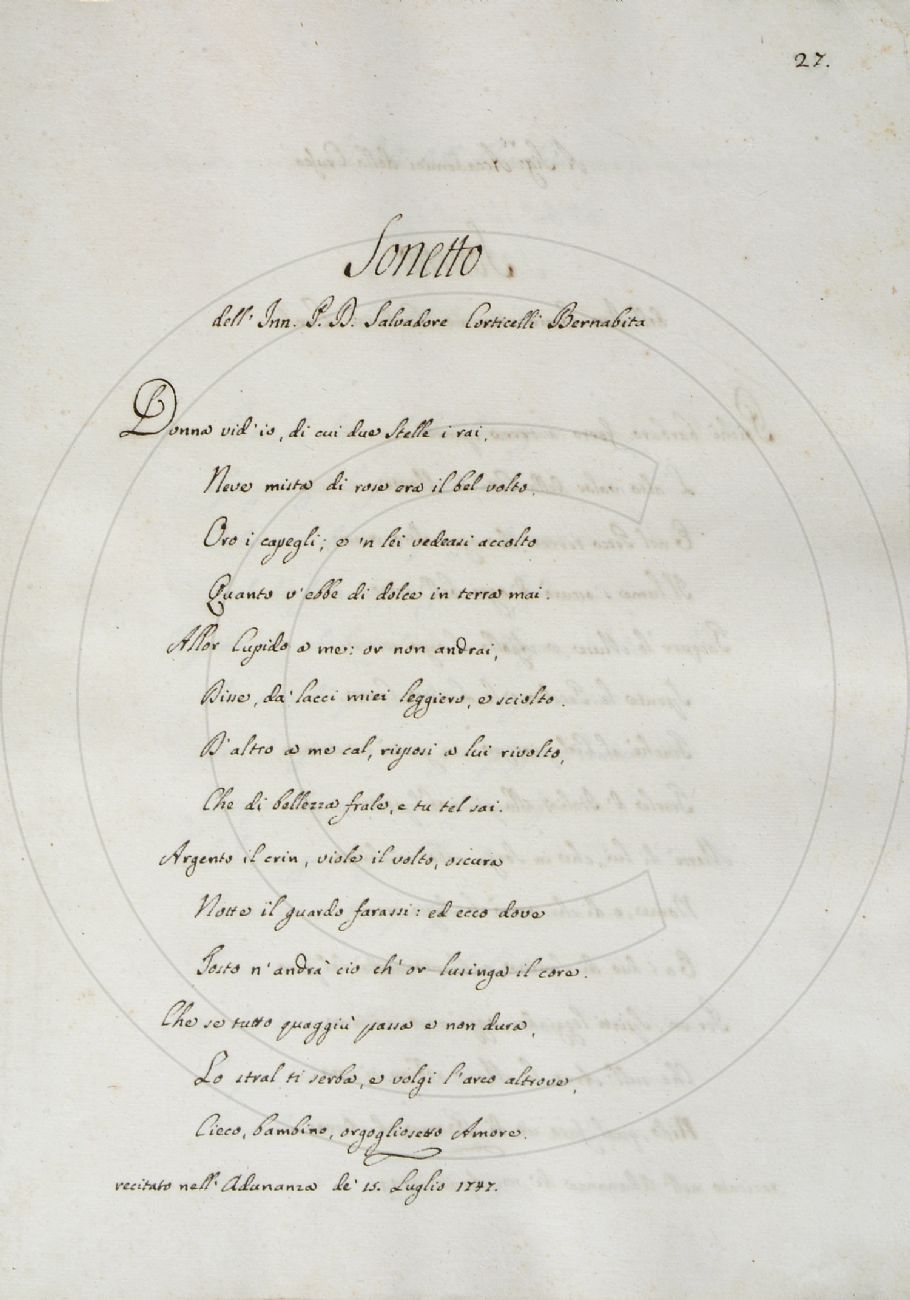 27.
Sonetto
dell' Inn. P. D. Salvadore Corticelli Bernabita
Donna vid' io, di cui due Stelle i rai,
Neve mista di rose era il bel volto,
Oro i capegli; e 'n lei vedeasi accolto
Quanto v' ebbe di dolce in terra mai.
Allor Cupido a me: or non andrai,
Disse, da' lacci miei leggiero, e sciolto.
D' altro a me cal, risposi a lui rivolto,
Che di bellezza frale, e tu tel sai.
Argento il crin, viole il volto, oscura
Notte il guardo farassi: ed ecco dove
Tosto n' andrà ciò ch' or lusinga il core.
Che se tutto quaggiù passa e non dura,
Lo stral ti serba, e volgi l' arco altrove,
Cieco, bambino, orgogliosetto Amore.
recitato nell' Adunanza de' 15. Luglio 1747.